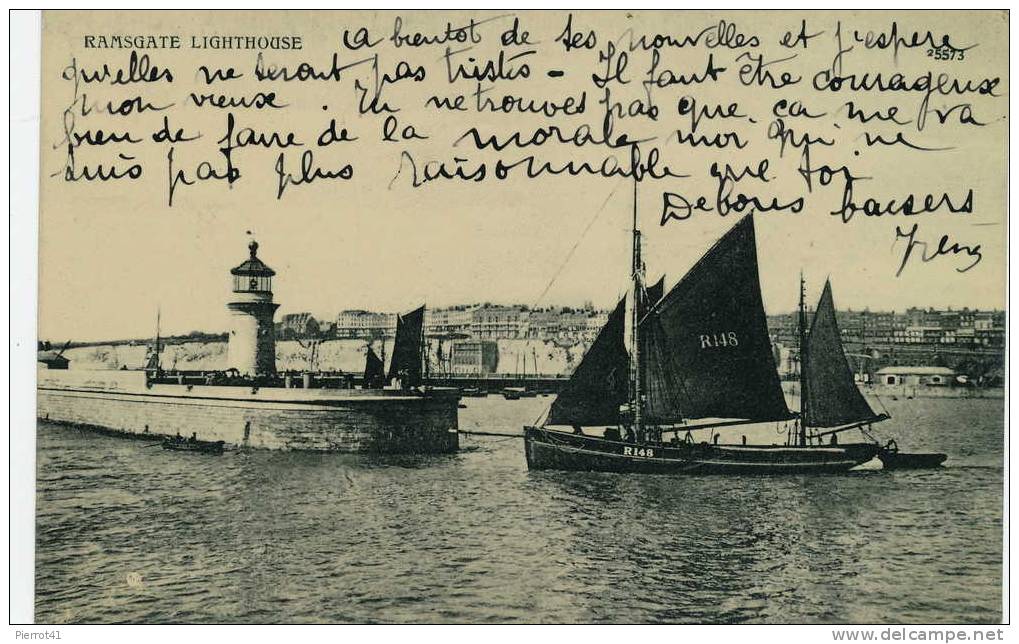 RAMSGATE LIGHTHOUSE
a bientot de tes nouvelles et j'espere
25573
qu'elles ne seront pas tristes - Il faut être courageuse
mon vieux. Tu ne trouves pas que ça me va
bien de faire de la morale moi qui ne
suis pas plus raisonnable que toi
De bons baisers
R148
R148
Pierrot41
http://www.delcampe.net